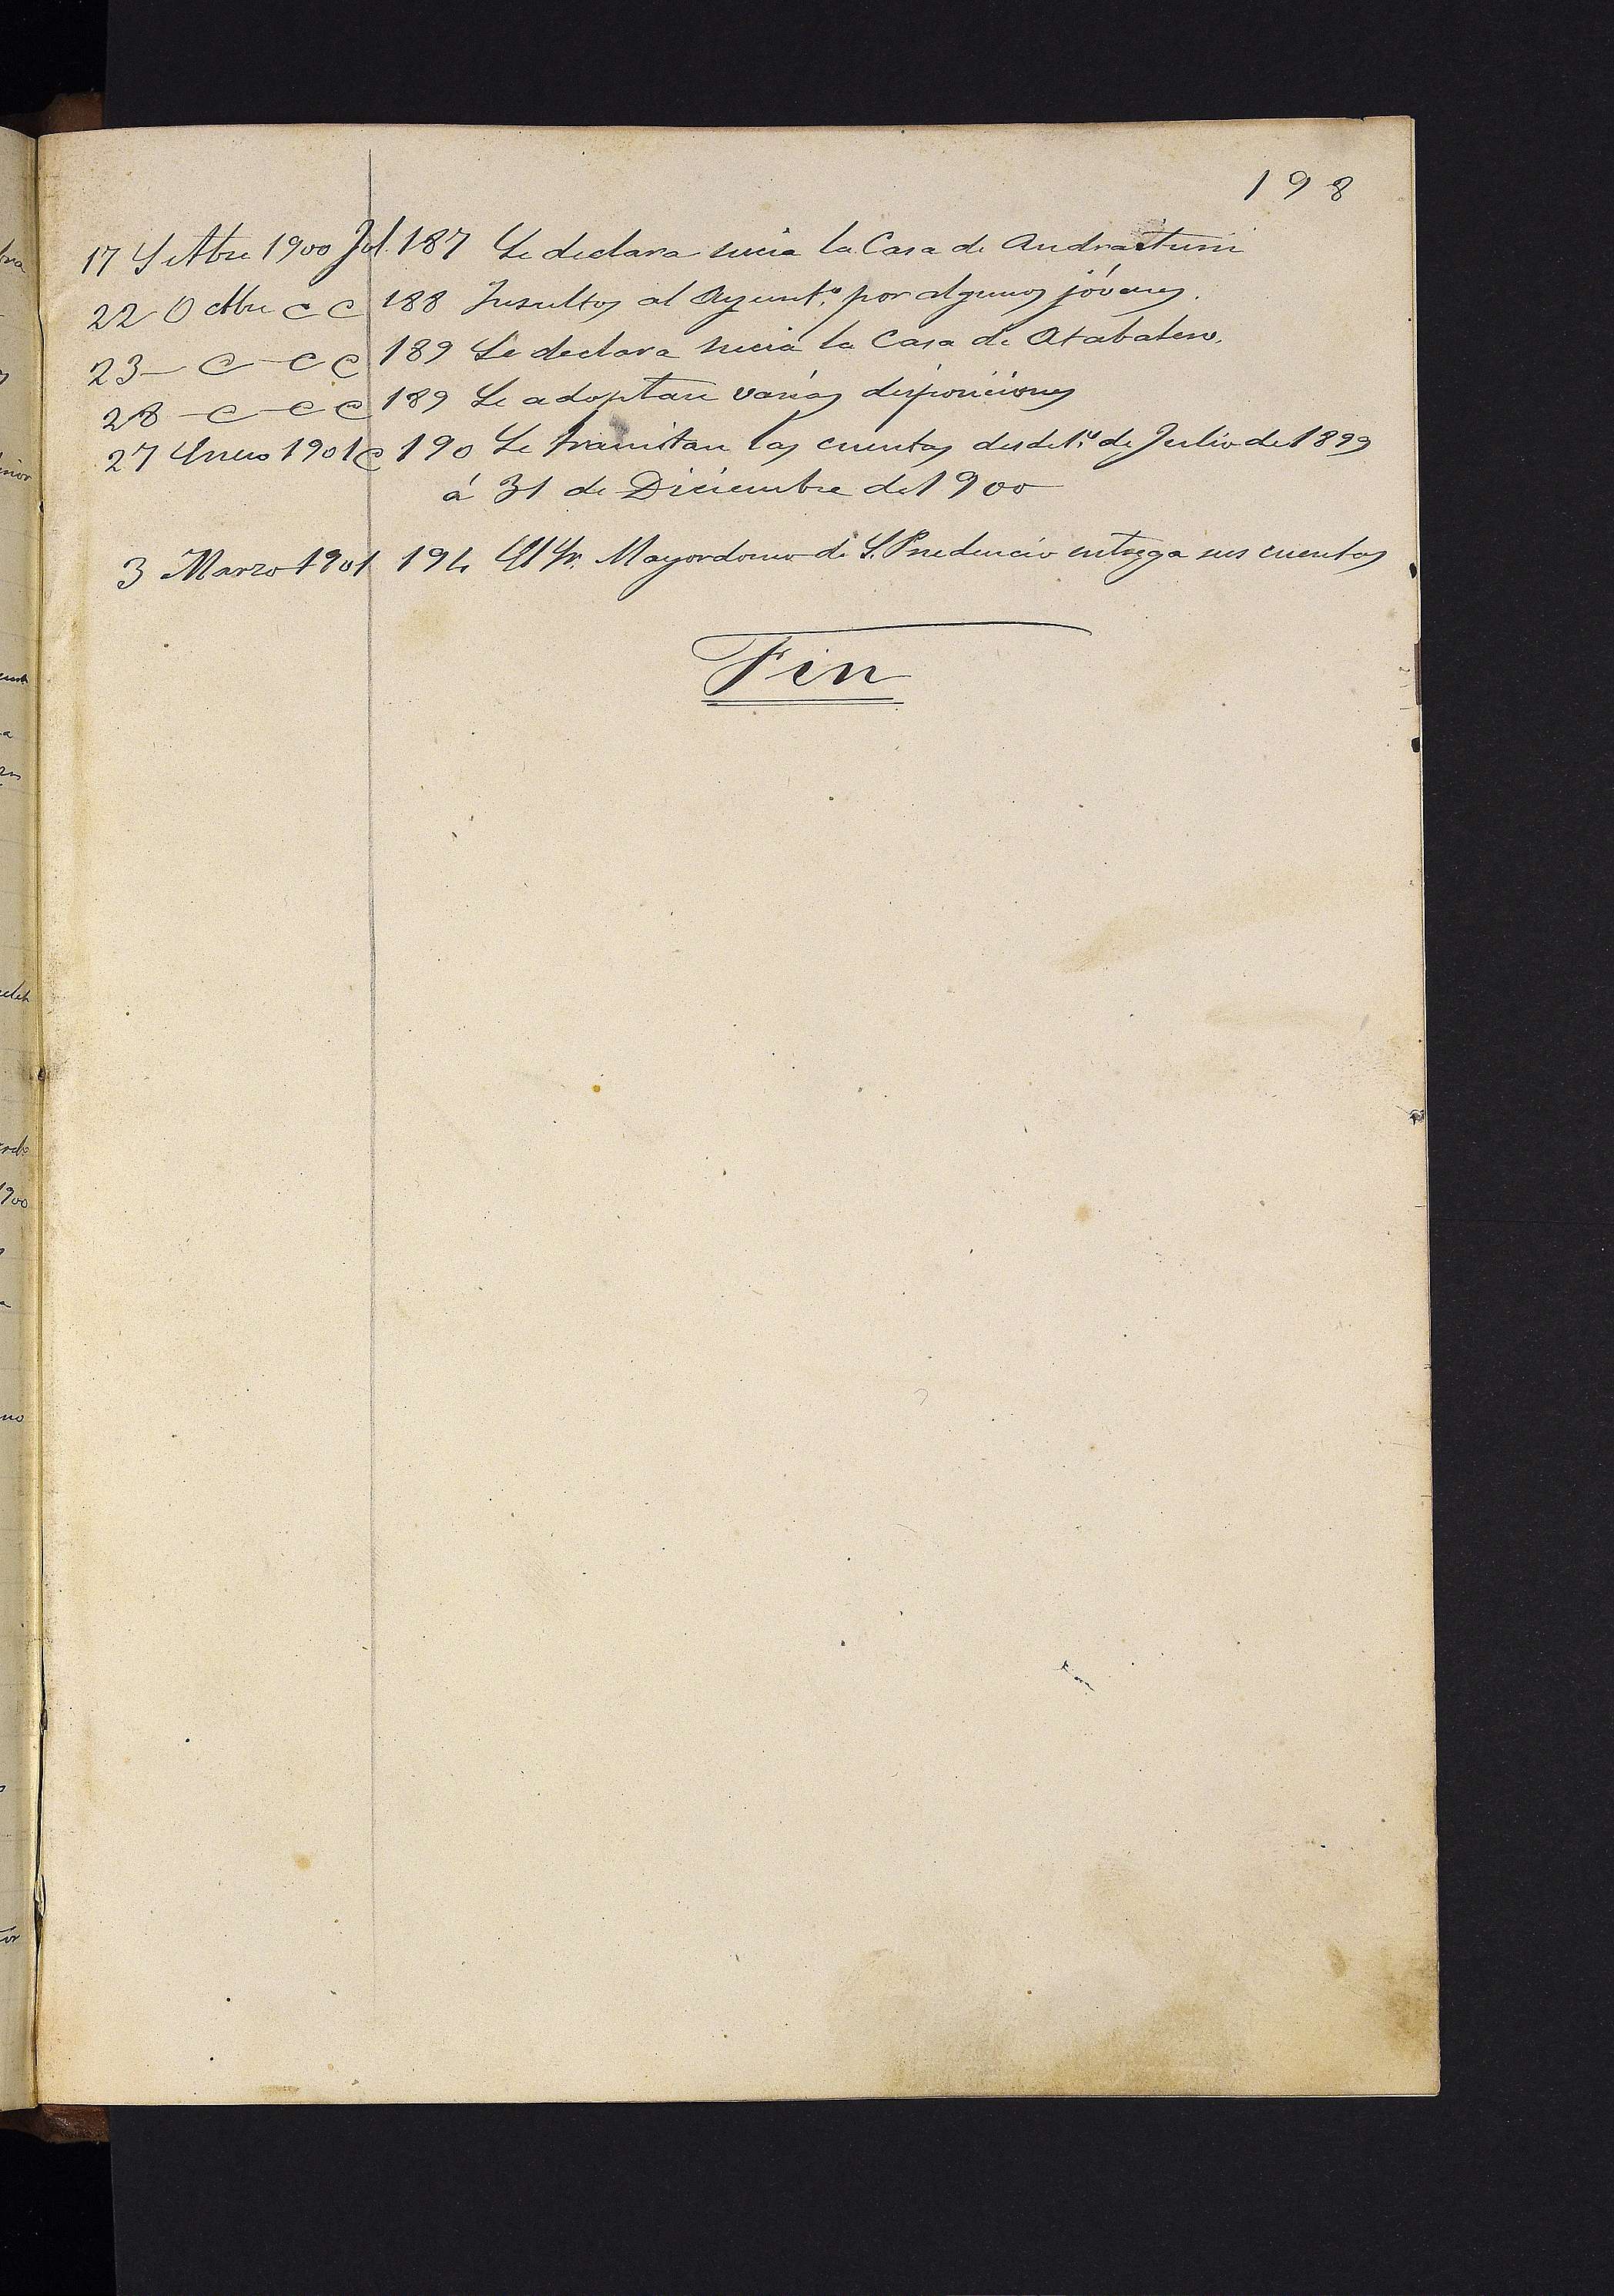 198
17 Setbre 1900 Fol. 187 Se declara sucia la Casa de Andraituni
22 Octbre " " 188 Insultos al Ayunt.º por algunos jóvenes.
23 " " " 189 Se declara sucia la Casa de Atabalero.
28 " " " 189 Se adoptan varias disposiciones
27 Enero 1901 " 190 Se tramitan las cuentas desde 1.º de Julio de 1899
á 31 de Diciembre de 1900
3 Marzo 1901 194 El Sr. Mayordomo de S. Prudencio entrega sus cuentas
Fin